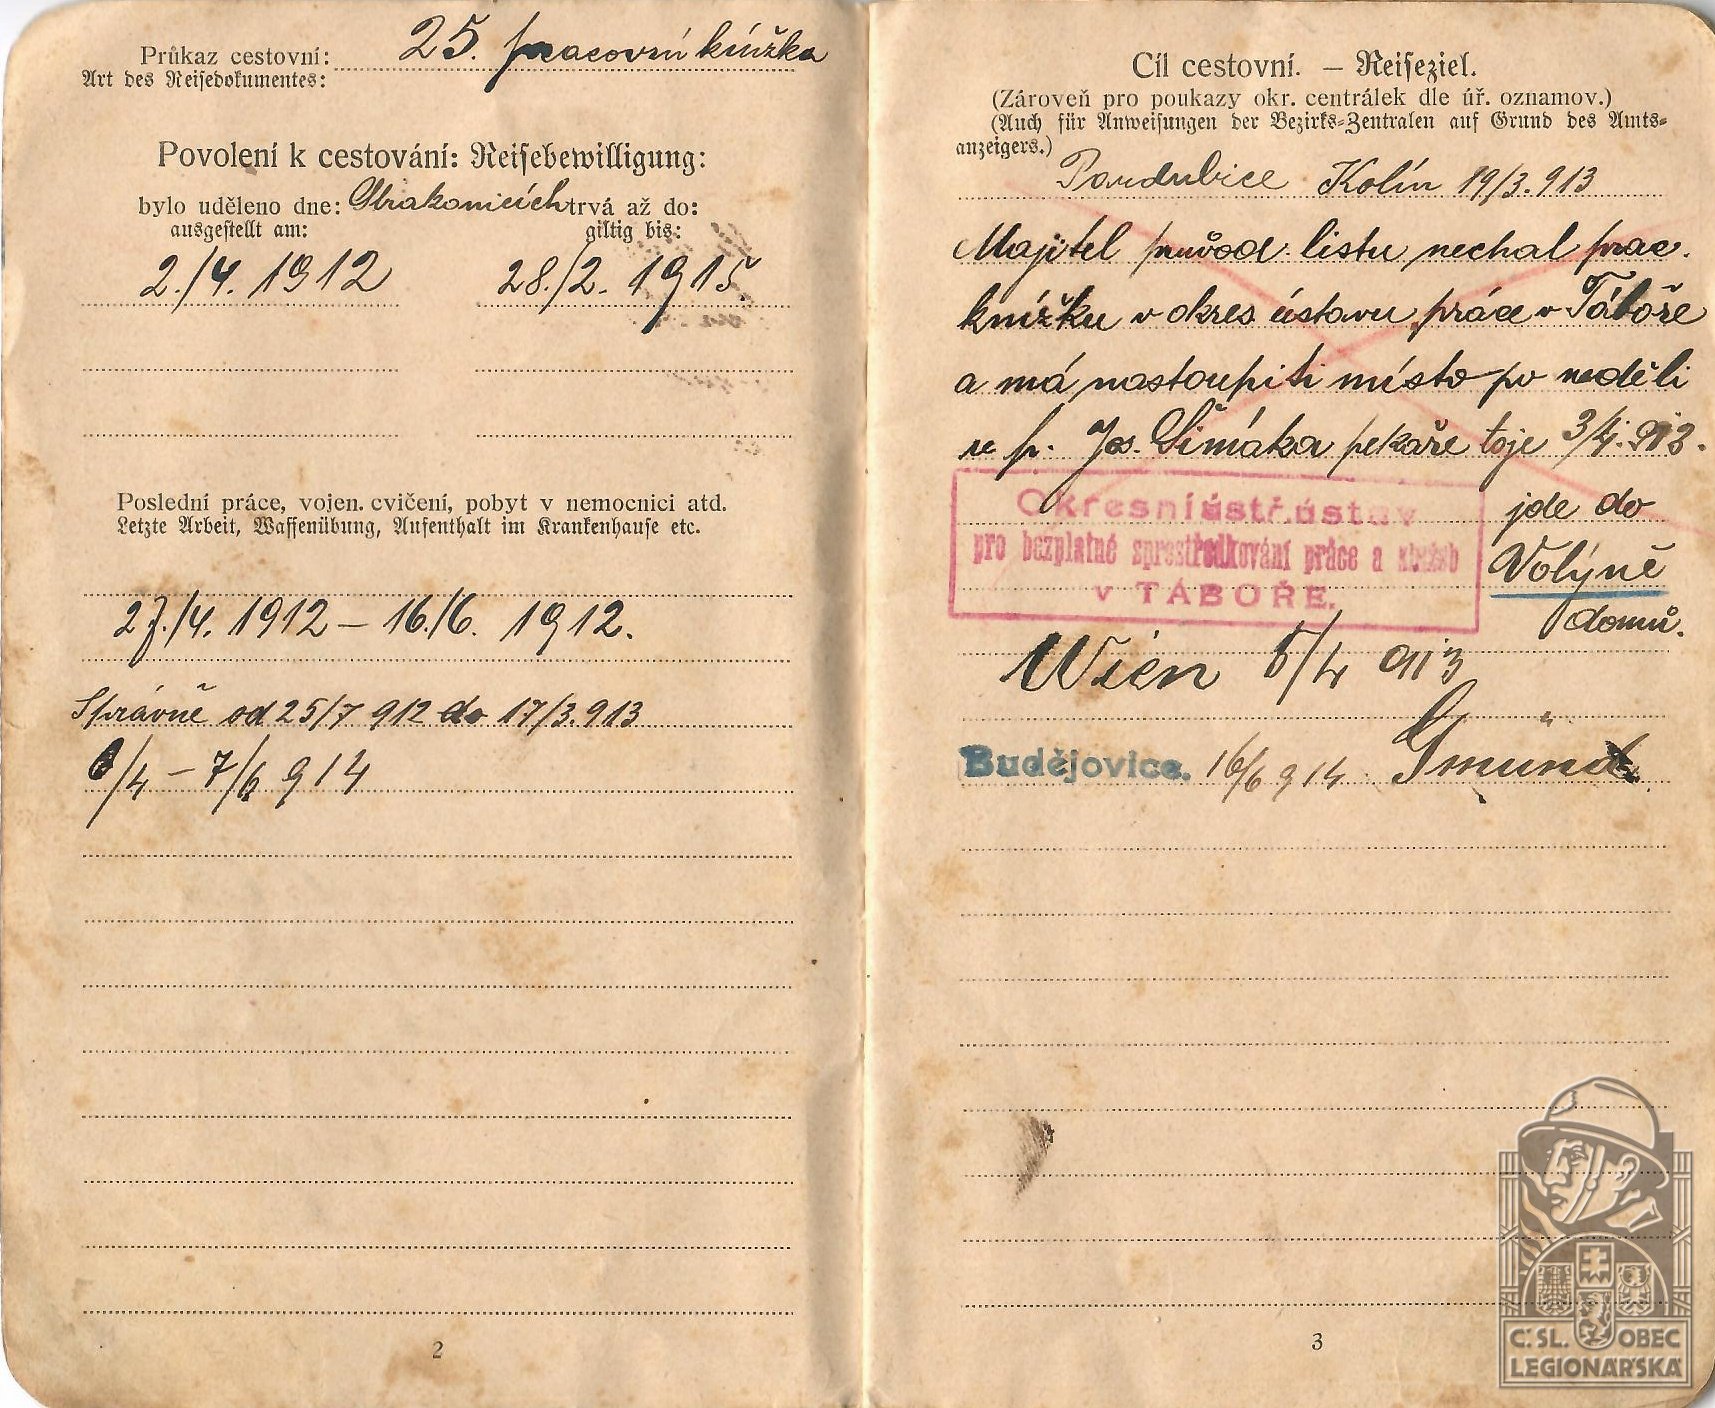 Průkaz cestovní: 25. pracovní knížka
Art des Reisedokumentes:
Povolení k cestování: Reisebewilligung:
bylo uděleno dne: trvá až do:
ausgestellt am: giltig bis:
2./4. 1912 28./2. 1915.
Poslední práce, vojen. cvičení, pobyt v nemocnici atd.
Letzte Arbeit, Waffenübung, Aufenthalt im Krankenhause etc.
27./4. 1912 – 16./6. 1912.
Správně od 25/7 912 do 17/3. 913
6/4 – 7/6 914
2
Cíl cestovní. — Reiseziel.
(Zároveň pro poukazy okr. centrálek dle úř. oznamov.)
(Auch für Anweisungen der Bezirks-Zentralen auf Grund des Amts-
anzeigers.)
Pardubice Kolín 19/3. 913
Majitel průvod. listu nechal prac.
knížku v okres ústavu práce v Táboře
a má nastoupiti místo po neděli
u p. Jos. Šimáka pekaře toje 3/4. 913.
Okresní ústř. ústav
pro bezplatné sprostředkování práce a služeb
v TÁBOŘE.
jde do
Volyně
domů.
Wien 5/4 913
Budějovice. 16/6 914 Gmünd
3
Č. SL. OBEC
LEGIONÁŘSKÁ